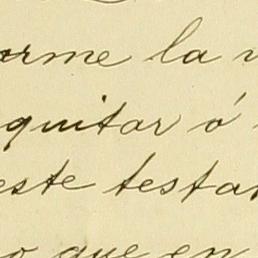 orme la v
quitar ó
este testa
o que en